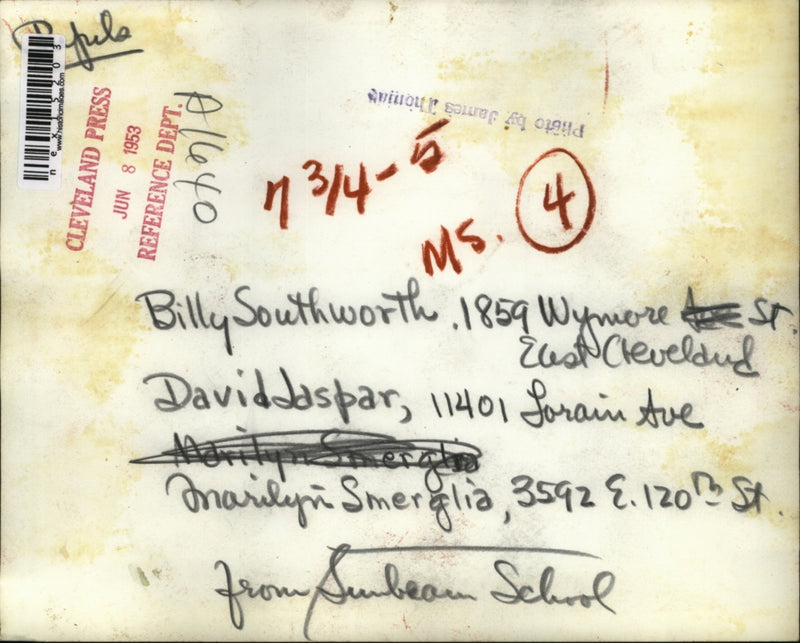 Pupils
nex15203
www.historicimages.com
CLEVELAND PRESS
JUN 8 1953
REFERENCE DEPT.
Photo by James Thomas
7 3/4 - 5
MS. 4
Billy Southworth, 1859 Wymore Ave St.
East Cleveland
David Jaspar, 11401 Lorain Ave
Marilyn Smerglia
Marilyn Smerglia, 3592 E. 120th St.
from Sunbeam School